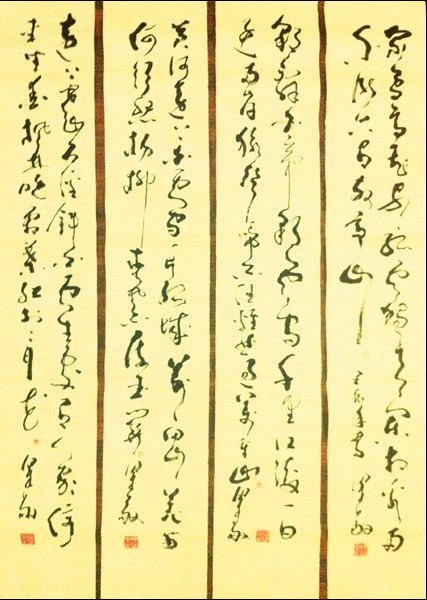 眾鳥高飛盡孤雲獨去閒相看兩
不厭只有敬亭山
朝辭白帝彩雲間千里江陵一日
還兩岸猿聲啼不住輕舟已過萬重山
黃河遠上白雲間一片孤城萬仞山羌笛
何須怨楊柳春風不度玉門關
遠上寒山石徑斜白雲生處有人家停
車坐愛楓林晚霜葉紅於二月花